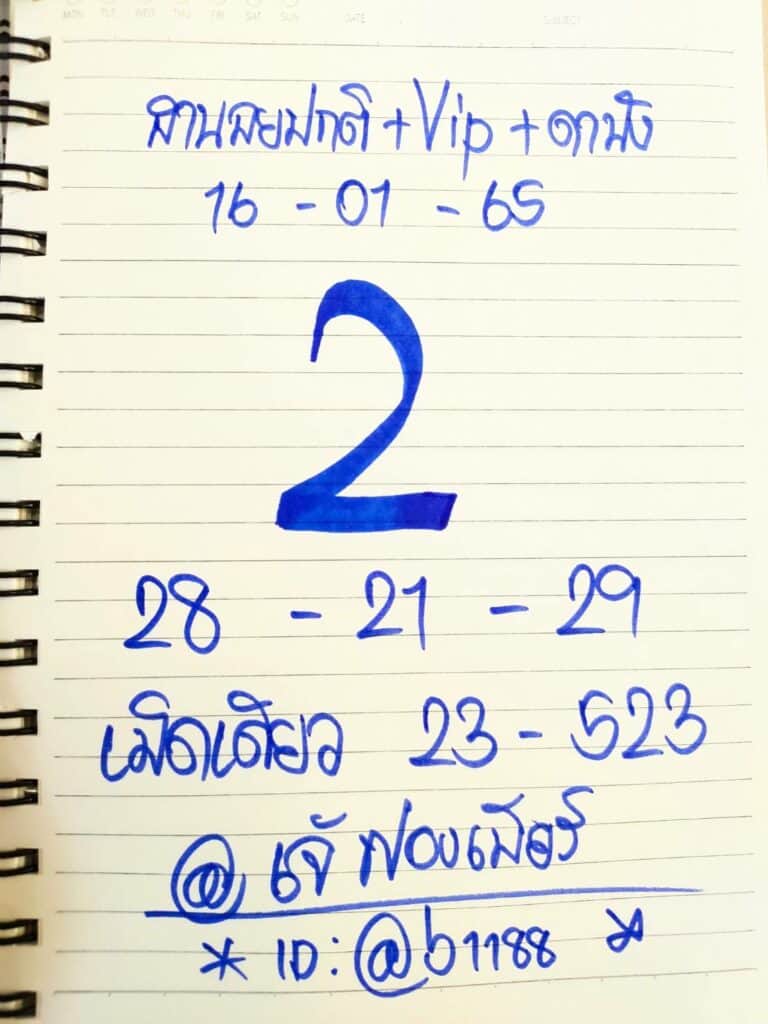 MON TUE WED THU FRI SAT SUN DATE SUBJECT
ฮานอยปกติ+Vip+ดานัง
16 - 01 - 65
2
28 - 21 - 29
เม็ดเดียว 23 - 523
@ เจ๊ฟองเบียร์
* ID: @b1188 *